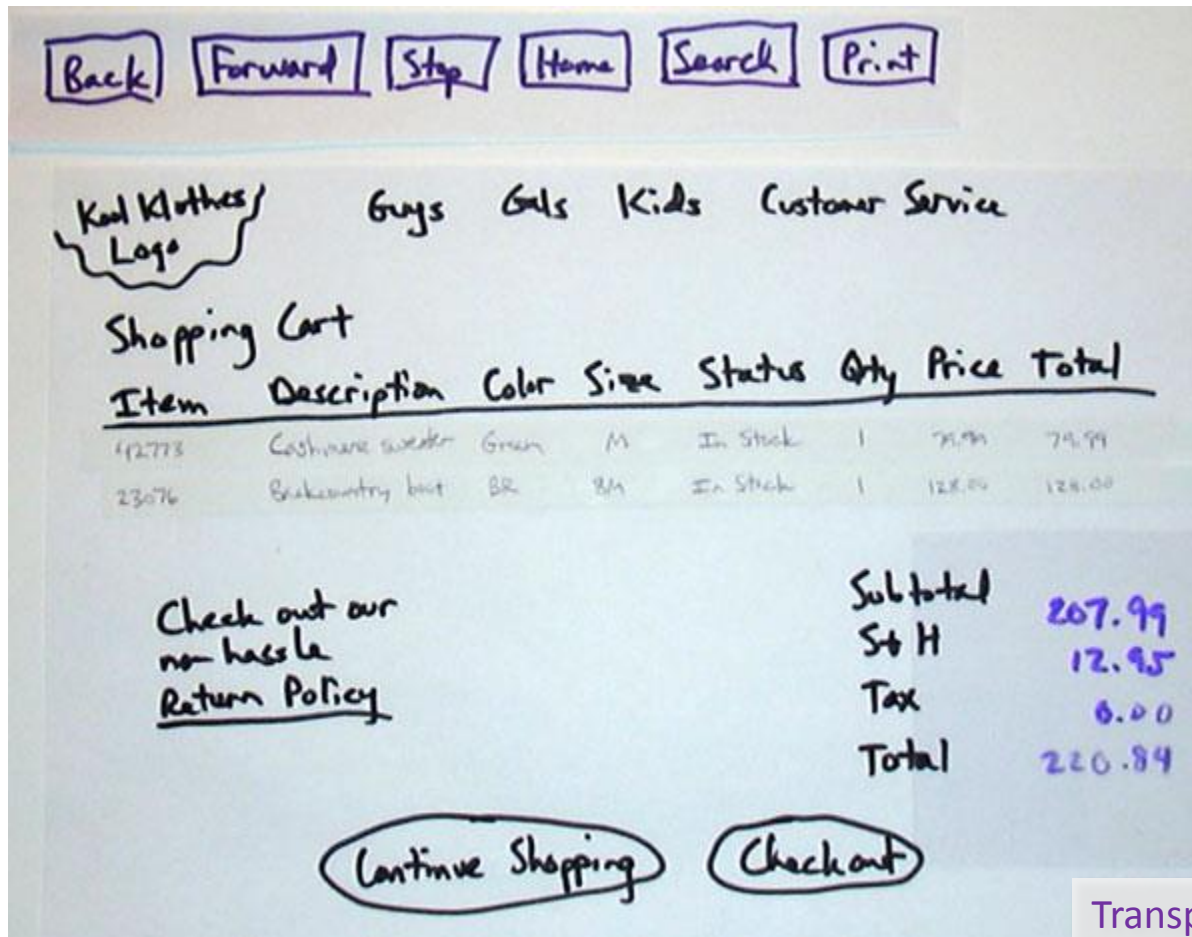 Back Forward Stop Home Search Print
Kool Klothes Guys Gals Kids Customer Service
Logo
Shopping Cart
Item Description Color Size Status Qty Price Total
42773 Cashmere sweater Green M In Stock 1 79.99 79.99
23076 Backcountry boot BR 8M In Stock 1 128.00 128.00
Check out our
no-hassle
Return Policy
Subtotal 207.99
S+H 12.95
Tax 0.00
Total 220.94
Continue Shopping Checkout
Transp